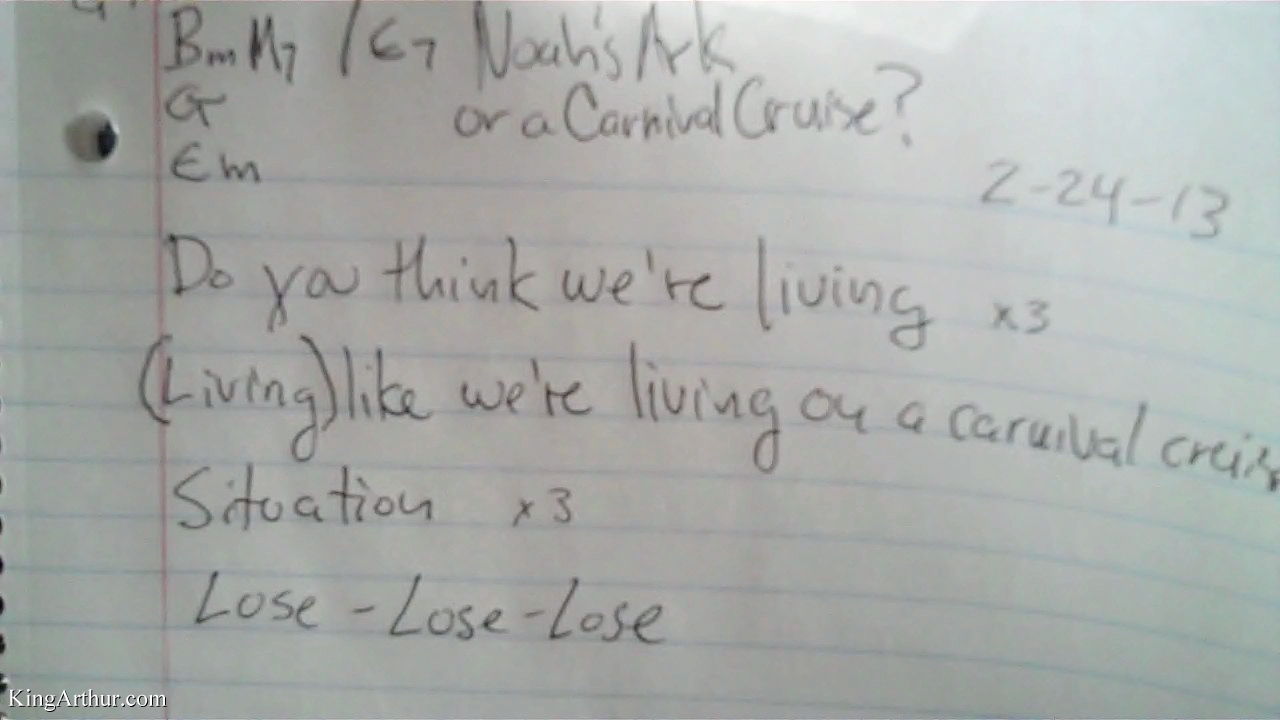 BmM7 / E7 Noah's Ark
G or a Carnival Cruise?
Em
2-24-13
Do ya think we're living x3
(Living) like we're living on a carnival
Situation x3
Lose - Lose - Lose
KingArthur.com